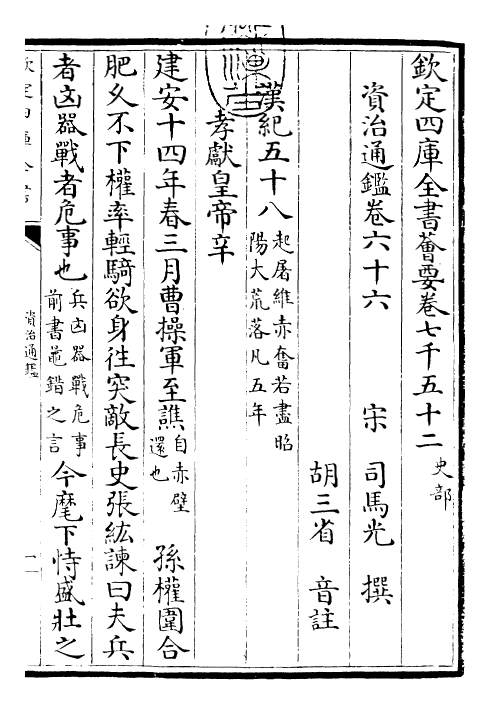 欽定四庫全書薈要卷七千五十二 史部
資治通鑑卷六十六 宋 司馬光 撰
胡三省 音註
漢紀五十八 起屠維赤奮若盡昭
陽大荒落凡五年
孝獻皇帝辛
建安十四年春三月曹操軍至譙 自赤壁
還也 孫權圍合
肥久不下權率輕騎欲身往突敵長史張紘諫曰夫兵
者凶器戰者危事也 兵凶器戰危事
前書鼂錯之言 今麾下恃盛壯之
資治通鑑